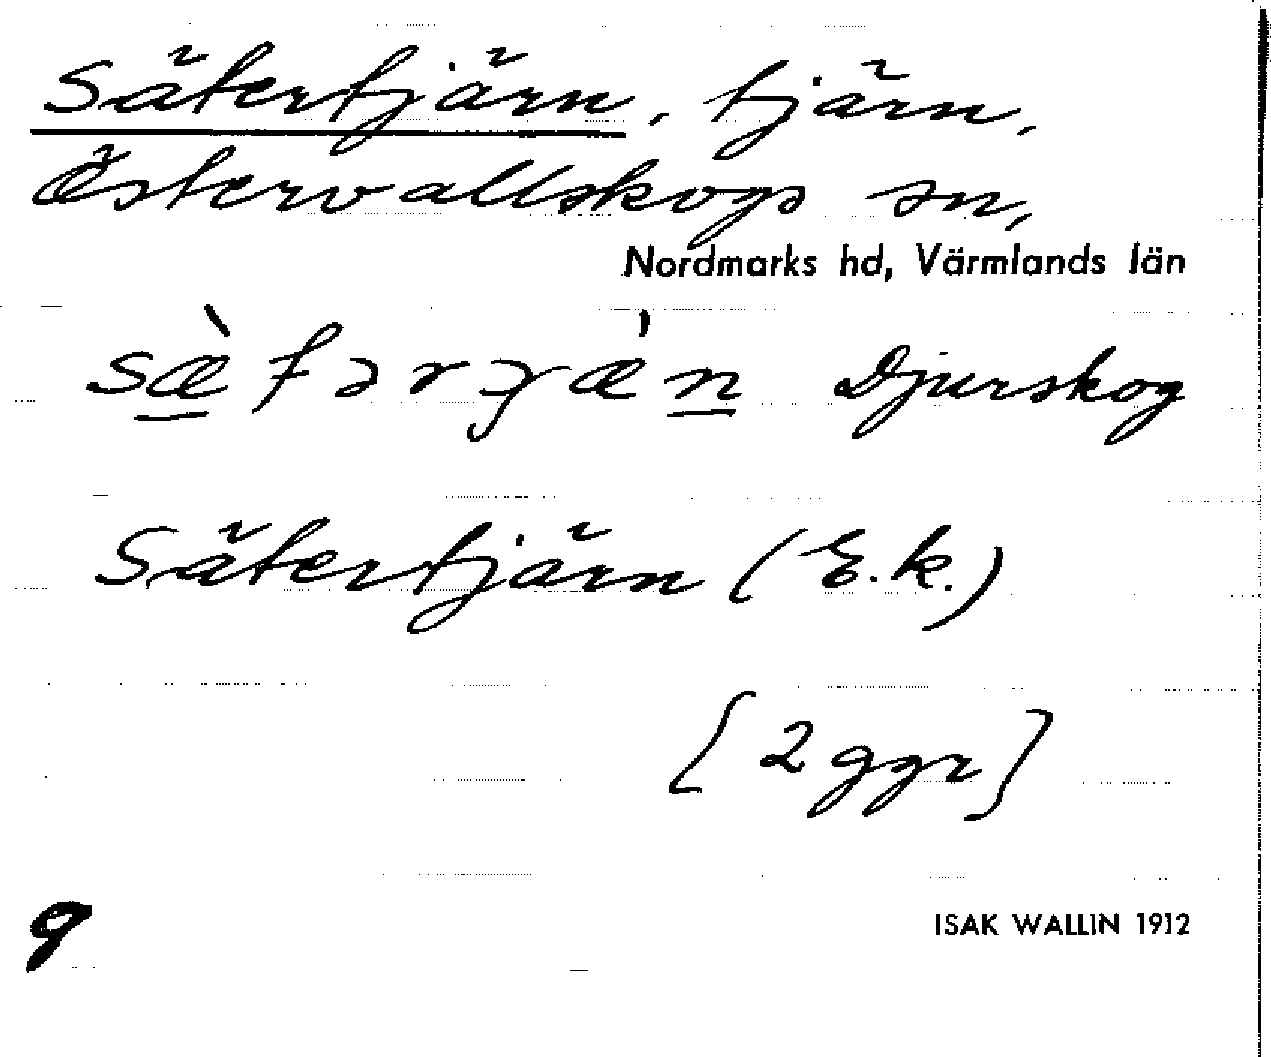 Sätertjärn, tjärn,
Östervallskogs sn,
Nordmarks hd, Värmlands län
Djurskog
Sätertjärn (E.k.)
[2 ggr]
g
ISAK WALLIN 1912